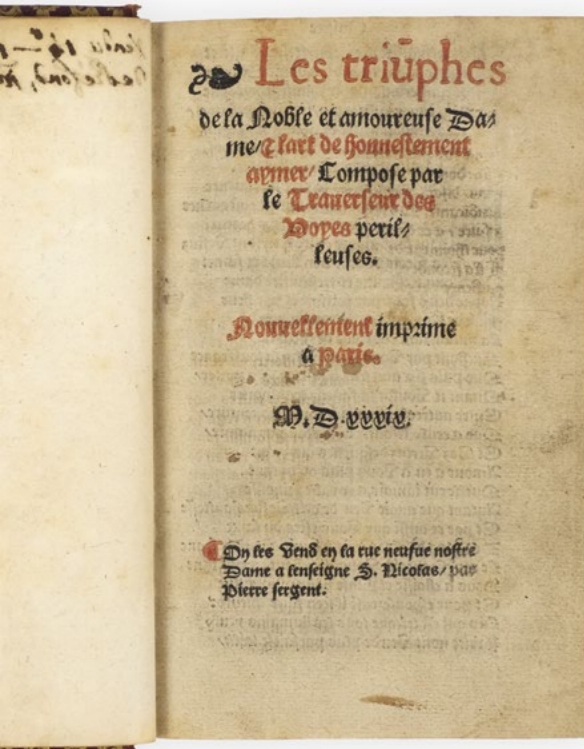 Les triūphes
de la Noble et amoureuse Da⸗
me/ ⁊ lart de honnestement
aymer/ Compose par
le Trauerseur des
Voyes peril⸗
leuses.
Nouuellement imprime
a paris.
M.D.xxxix.
¶ On les Vend en la rue neufue nostre
Dame a lenseigne S. Nicolas/ par
Pierre sergent.